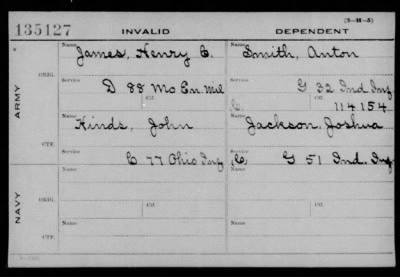 135127 INVALID DEPENDENT (3-H-5)
Name James, Henry C. Name Smith, Anton
ARMY
ORIG.
Service D 88 Mo En. Mil Service G 32 Ind Inf
Ctf. C. Ctf. 114154
Name Hinds, John Name Jackson, Joshua
CTF.
Service C 77 Ohio Inf Service C, G 51 Ind. Inf
NAVY
ORIG.
Name Name
Ctf. Ctf.
Name Name
CTF.